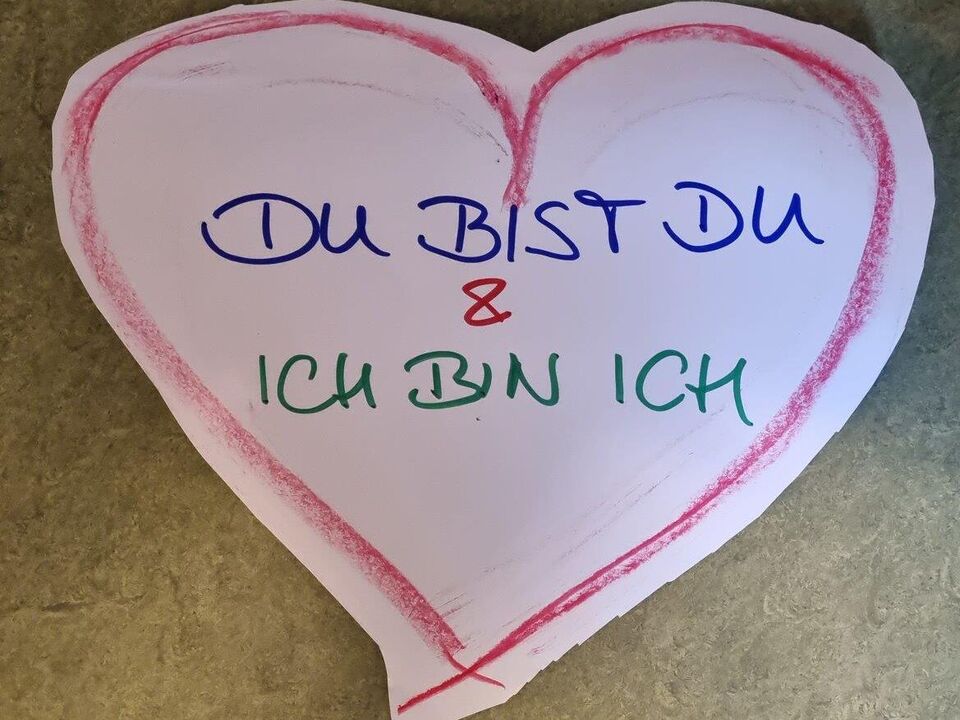 DU BIST DU
&
ICH BIN ICH